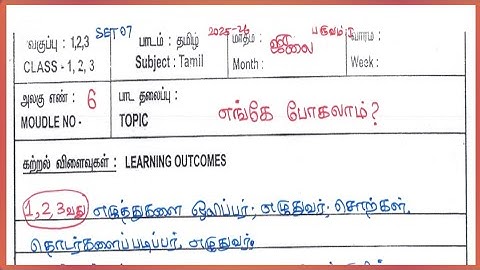 SET 07 2025-26 பருவம்:I
வகுப்பு : 1,2,3 பாடம் : தமிழ் மாதம் : ஜூலை வாரம் :
CLASS - 1, 2, 3 Subject : Tamil Month : Week :
அலகு எண் : 6 பாட தலைப்பு :
MOUDLE NO - TOPIC எங்கே போகலாம்?
கற்றல் விளைவுகள் : LEARNING OUTCOMES
1,2,3வது எழுத்துகளை ஒலிப்பர்; எழுதுவர்; சொற்கள்.
தொடர்களைப்படிப்பர், எழுதுவர்.